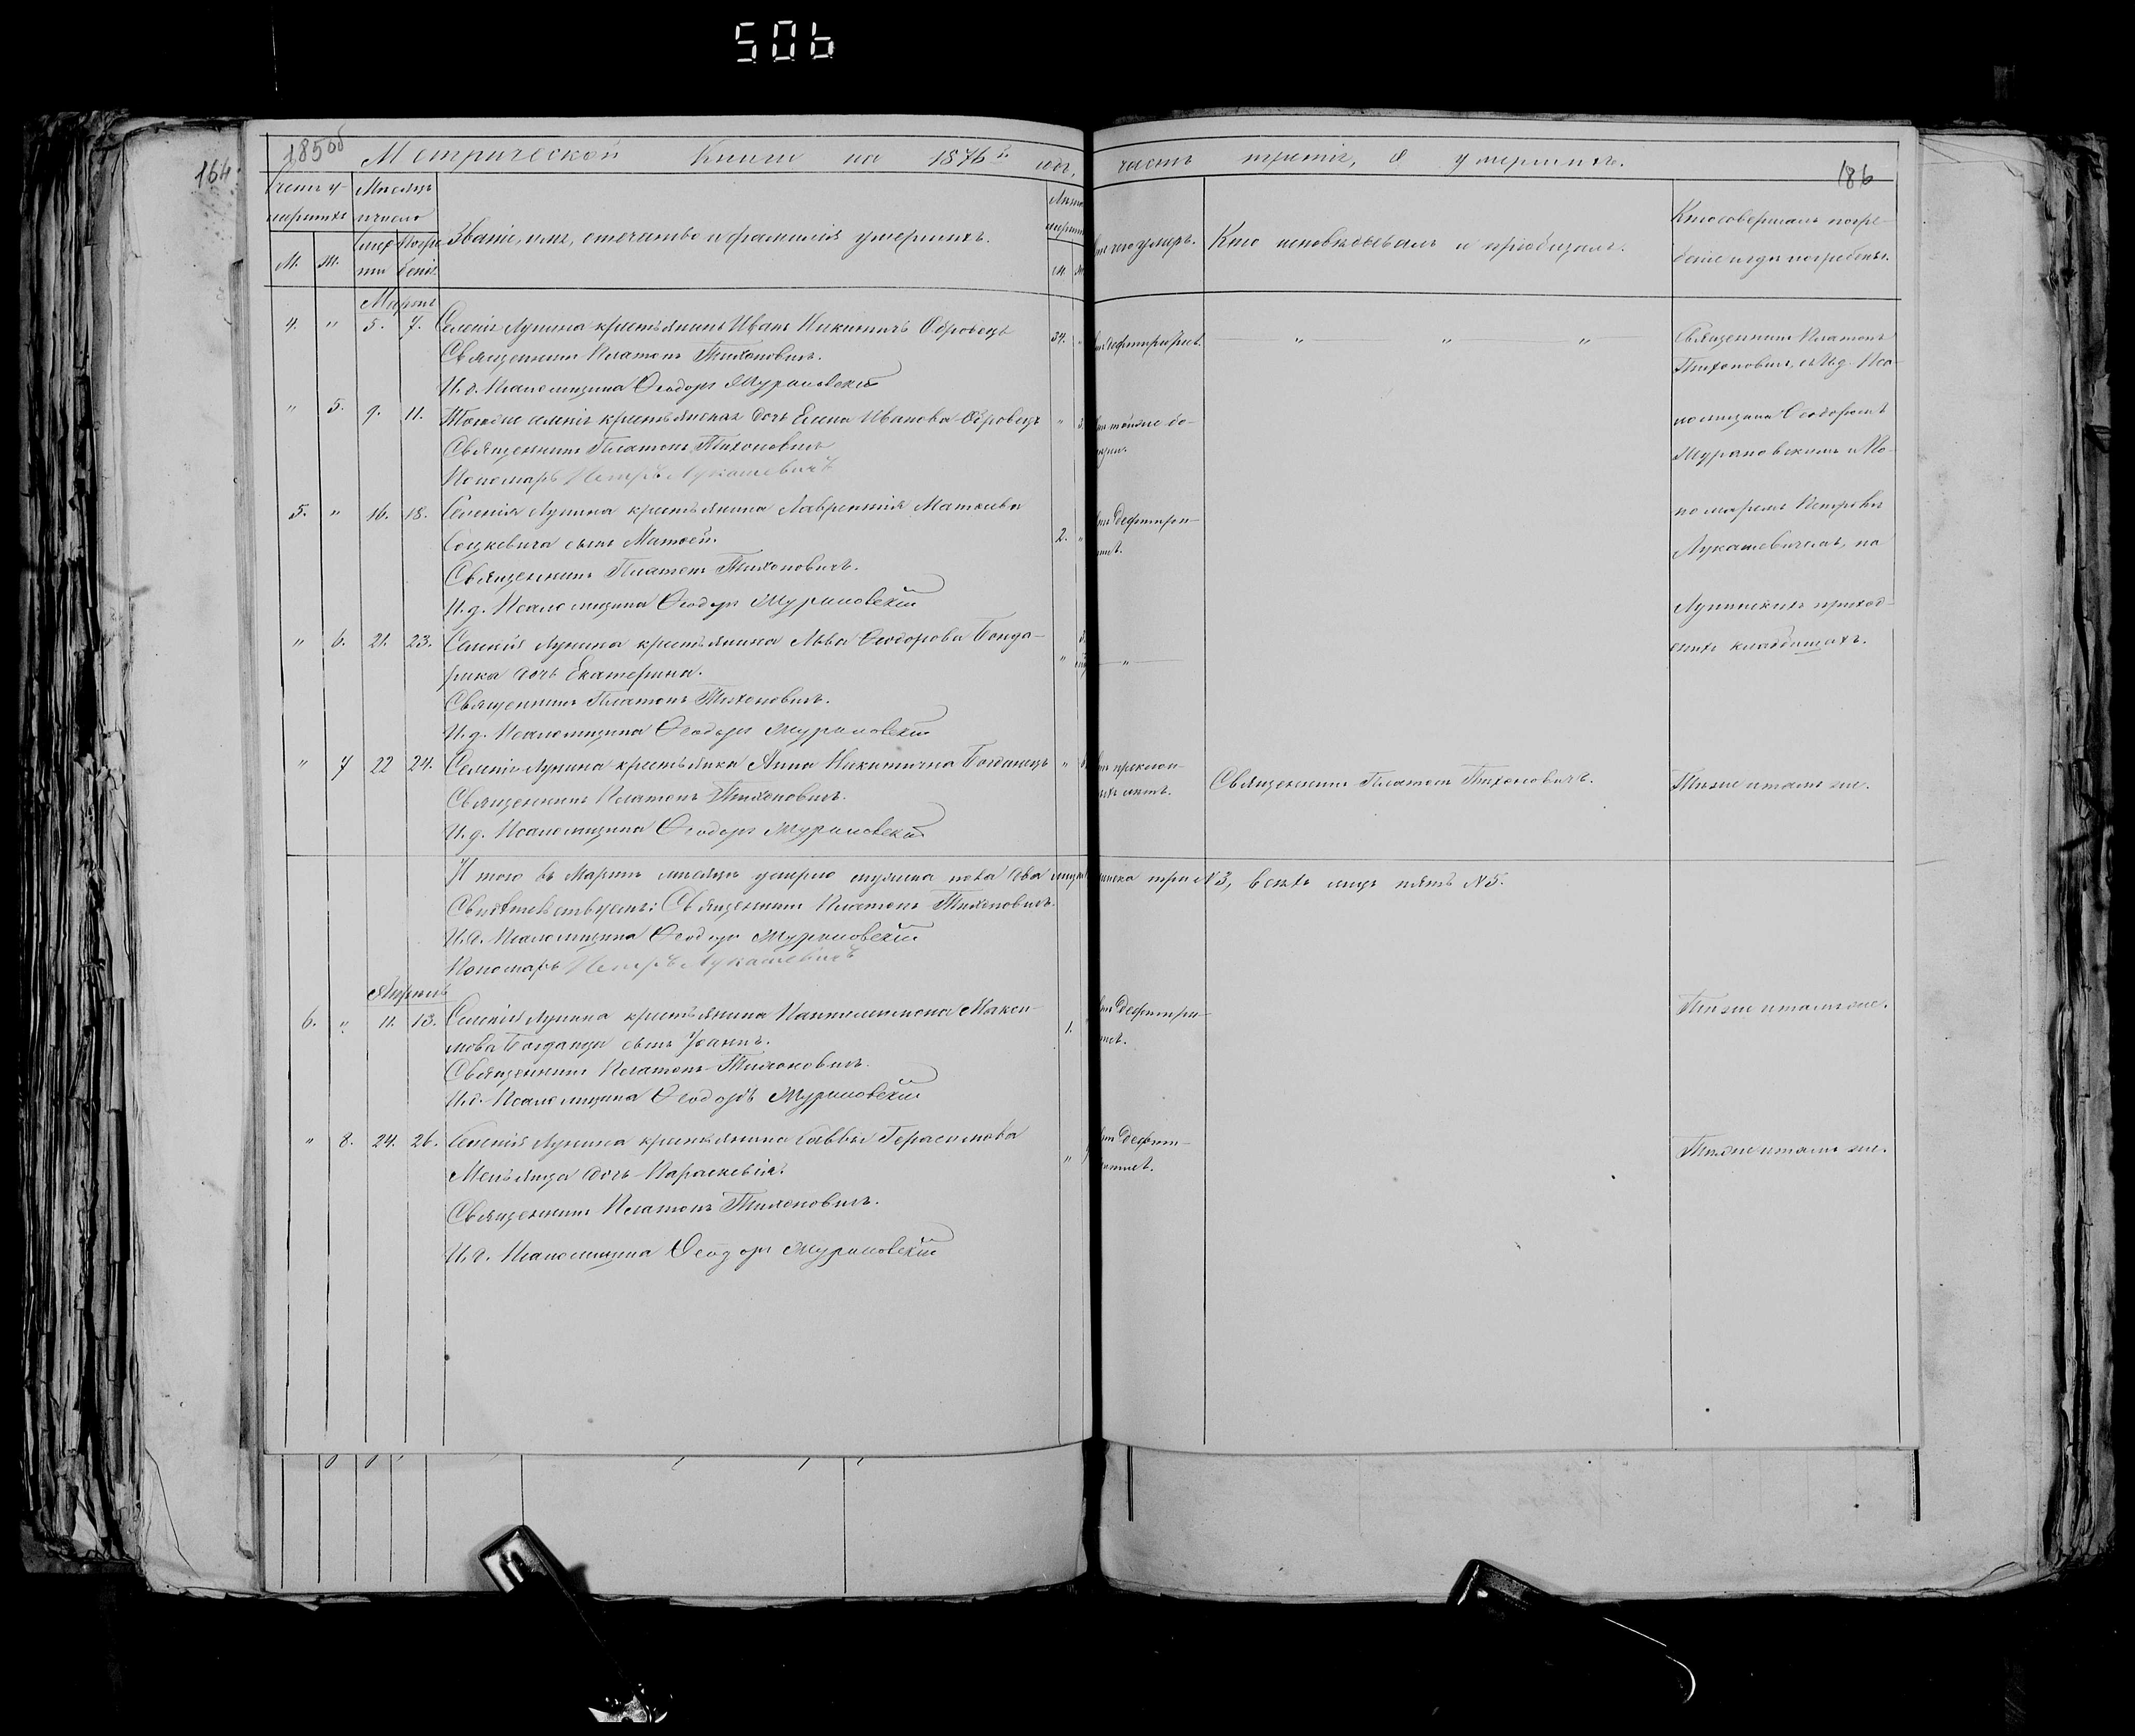 506
164.
185об
186
Метрической Книги на 1876й годъ, часть третія, о умершихъ.
Счетъ у-
мершихъ
М. Ж.
Мѣсяцъ
и число
смер
ти
Погре
бенія.
Званіе, имя, отечество и фамилія умершихъ.
Лѣта
М. Ж.
Кто исповѣдывалъ и пріобщалъ.
Кто совершалъ погре-
беніе и гдѣ погребены.
Мартъ
4. " 5. 7. Селенія Лунина крестьянинъ Иванъ Никитичъ Обровецъ 34. "
Священникъ Платонъ Тихоновичъ.
И. д. Псаломщика Ѳеодоръ Мурановскій
" " "
Священникъ Платонъ
Тихоновичъ, съ И. д. Пса-
ломщика Ѳеодоромъ
Мурановскимъ и По-
номаремъ Петромъ
Лукашевичемъ, на
Лунинскихъ приход-
скихъ кладбищахъ.
" 5. 9. 11. Тогоже селенія крестьянская дочь Елена Иванова Обровецъ "
Священникъ Платонъ Тихоновичъ
Пономарь Петръ Лукашевичъ
5. " 16. 18. Селенія Лунина крестьянина Лаврентія Матѳеева
Соцкевича сынъ Матѳей. 2. "
Священникъ Платонъ Тихоновичъ.
И. д. Псаломщика Ѳеодоръ Мурановскій
" 6. 21. 23. Селенія Лунина крестьянина Льва Ѳеодорова Бонда-
рика дочь Екатерина. "
Священникъ Платонъ Тихоновичъ.
И. д. Псаломщика Ѳеодоръ Мурановскій
" 7 22 24. Селенія Лунина крестьянка Анна Никитична Богданецъ "
Священникъ Платонъ Тихоновичъ.
И. д. Псаломщика Ѳеодоръ Мурановскій
Священникъ Платонъ Тихоновичъ.
Тѣже и тамъ же.
И того въ Мартѣ мѣсяцѣ умерло мужеска пола два три №3, всѣхъ лицъ пять №5.
Свидѣтельствуемъ: Священникъ Платонъ Тихоновичъ.
И. д. Псаломщика Ѳеодоръ Мурановскій
Пономарь Петръ Лукашевичъ
Апрѣль
6. " 11. 13. Селенія Лунина крестьянина Пантелеимона Макси-
мова Богданца сынъ Іоаннъ. 1.
Священникъ Платонъ Тихоновичъ.
И. д. Псаломщика Ѳеодоръ Мурановскій
Тѣже и тамъ же.
" 8. 24. 26. Селенія Лунина крестьянина Саввы Герасимова
дочь Параскевія. "
Священникъ Платонъ Тихоновичъ.
И. д. Псаломщика Ѳеодоръ Мурановскій
Тѣже и тамъ же.